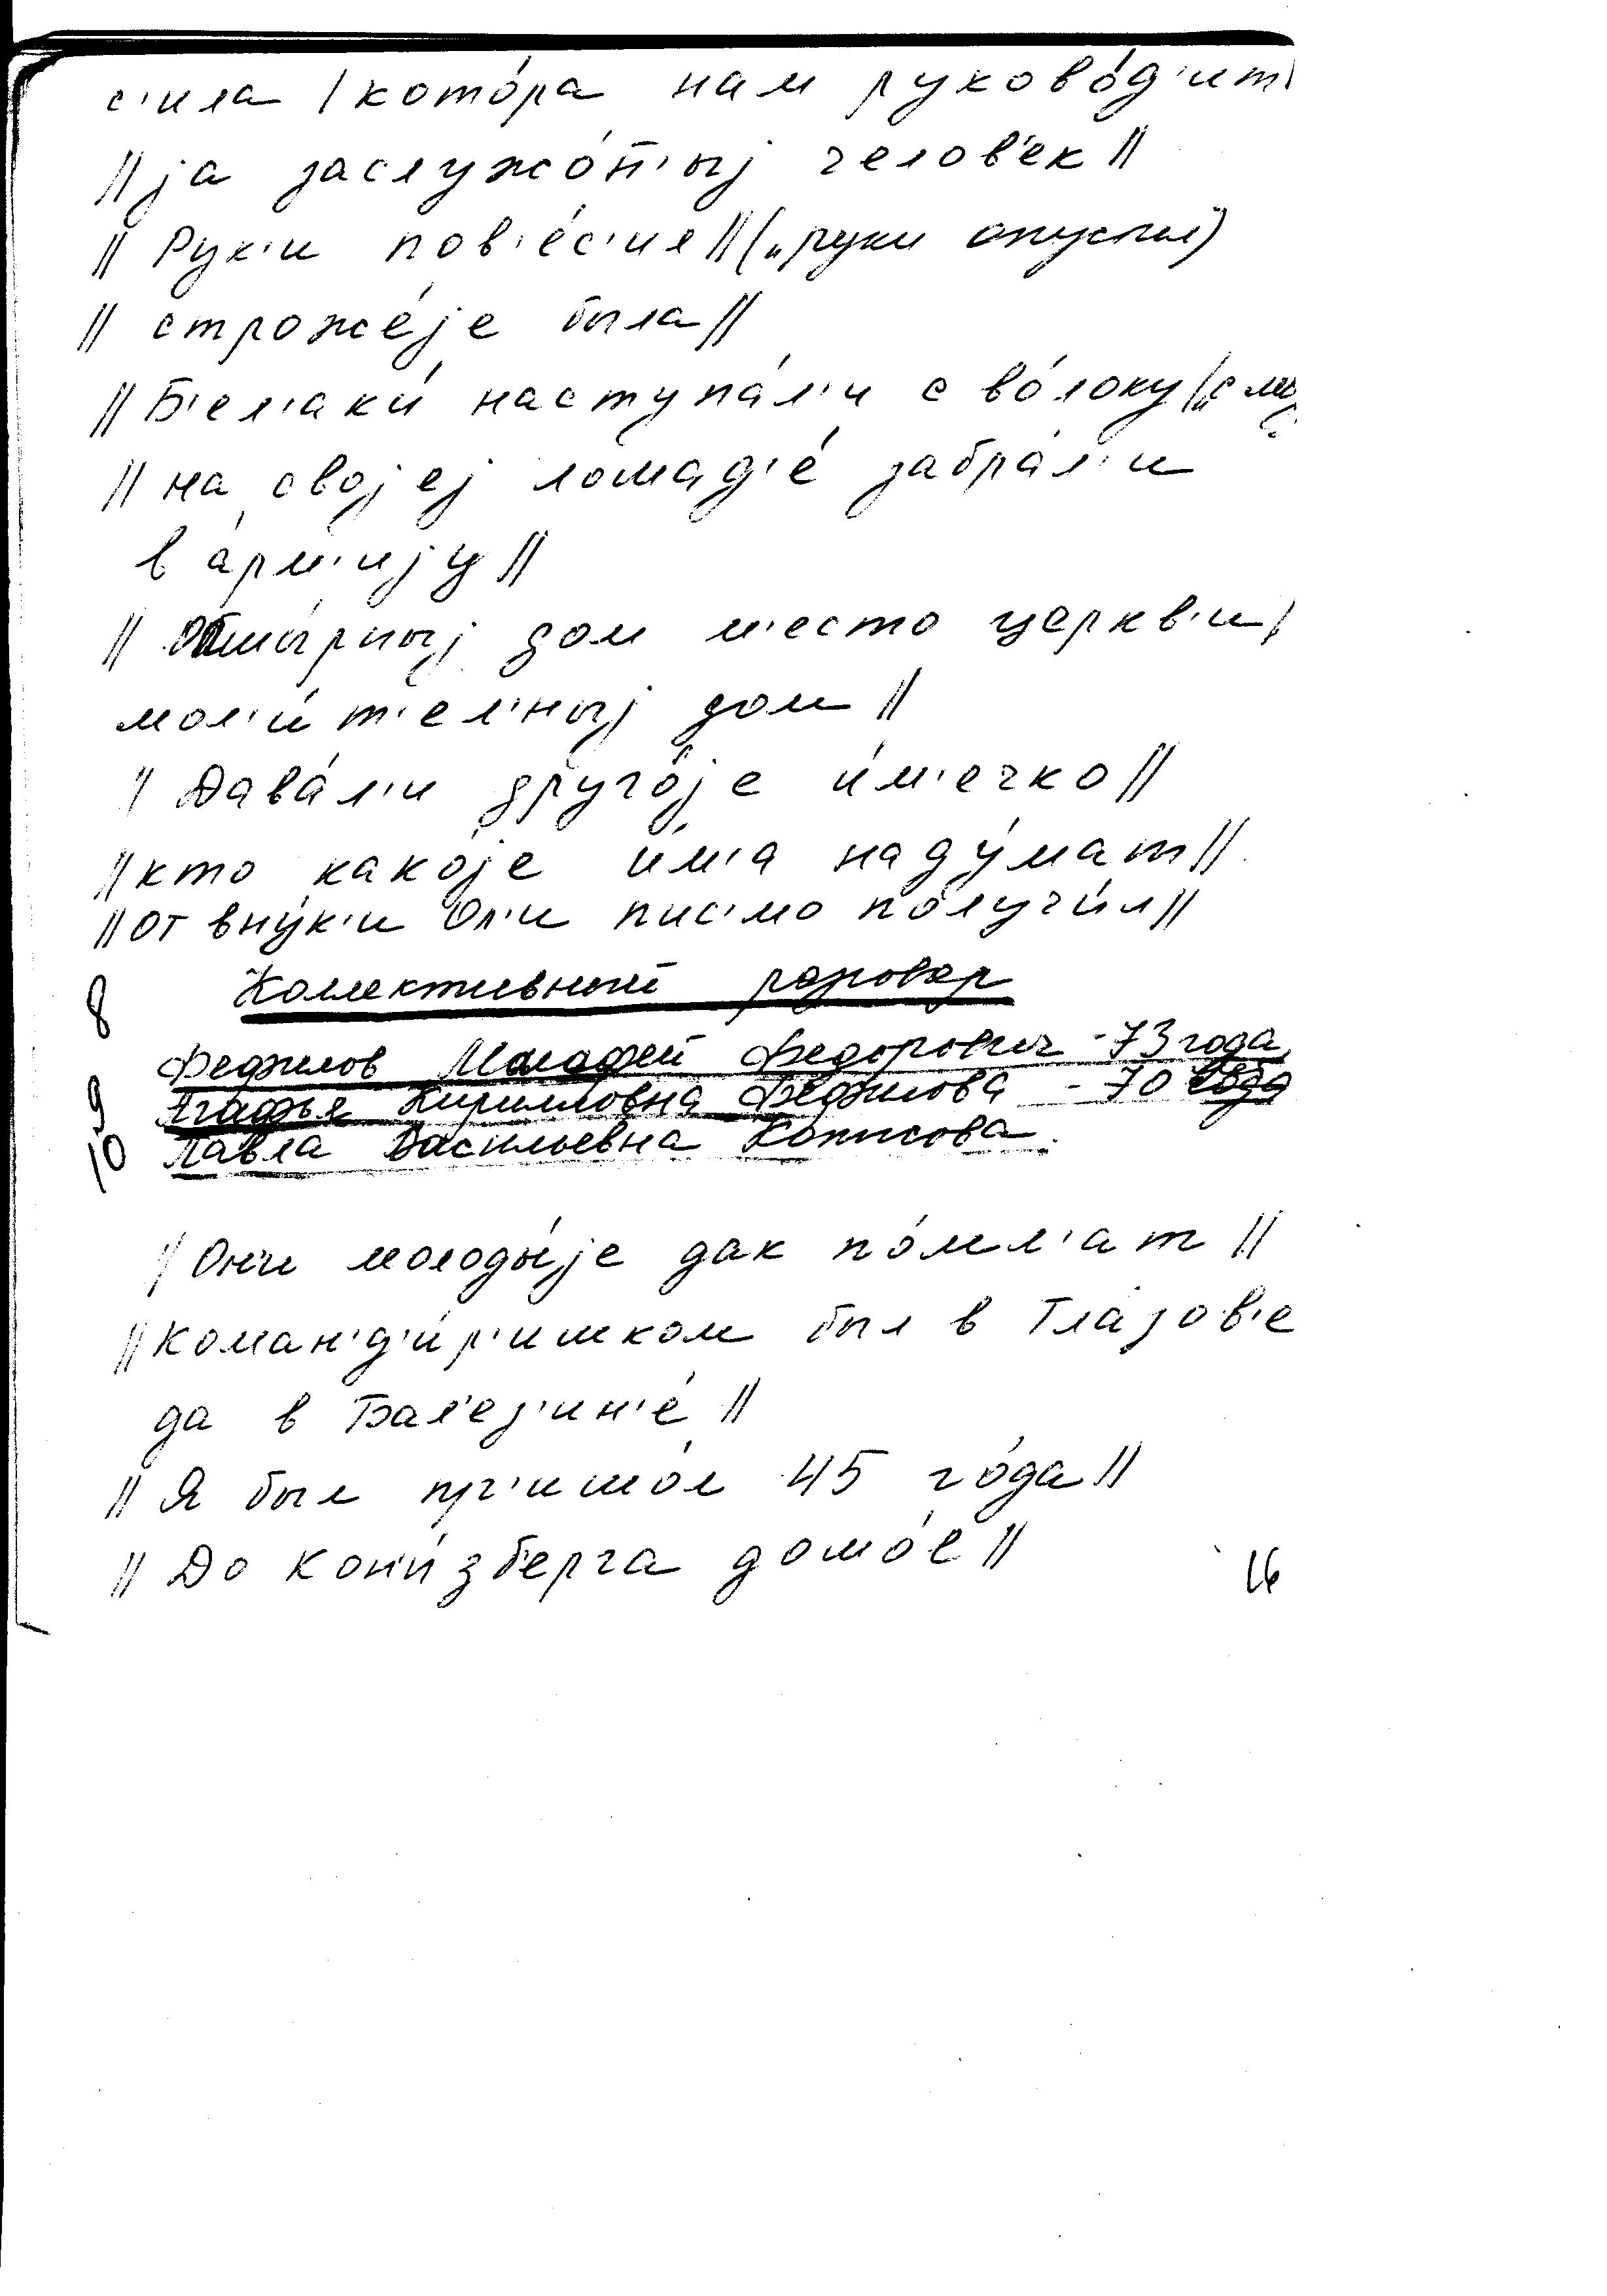 с'ила / кото́ра нам руково́д'ит
|| jа заслужо́н̄'ыj челов'ек ||
|| Рук'и пов'е́с'ил || („руки опустил)
|| строже́jе была ||
|| Б'ел'аки́ наступа́л'и с во́локу /„с
|| на своjеj лошад'е́ забра́л'и
в а́рм'иjу ||
|| Обшы́рныj дом м'есто церкв'и /
мол'и́т'ел'ныj дом ||
|| Дава́л'и друго́jе и́м'ечко ||
|| кто како́jе и́м'а наду́мат ||
|| от вну́к'и Ол'и пис'мо получи́л ||
8 Коллективный разговор
Фефилов Малафей Федорович - 73 года
9 Агафья Кирилловна Фефилова - 70 года
10 Павла Васильевна Копысова.
|| Он'и молоды́jе дак по́мл'ат ||
|| Коман'д'и́р'ишком был в Глазов'е
да в Бал'ез'ин'е́ ||
|| Я был пр'ишо́л 45 го́да ||
|| До Кон'и́зб'ерга домо́е ||
16